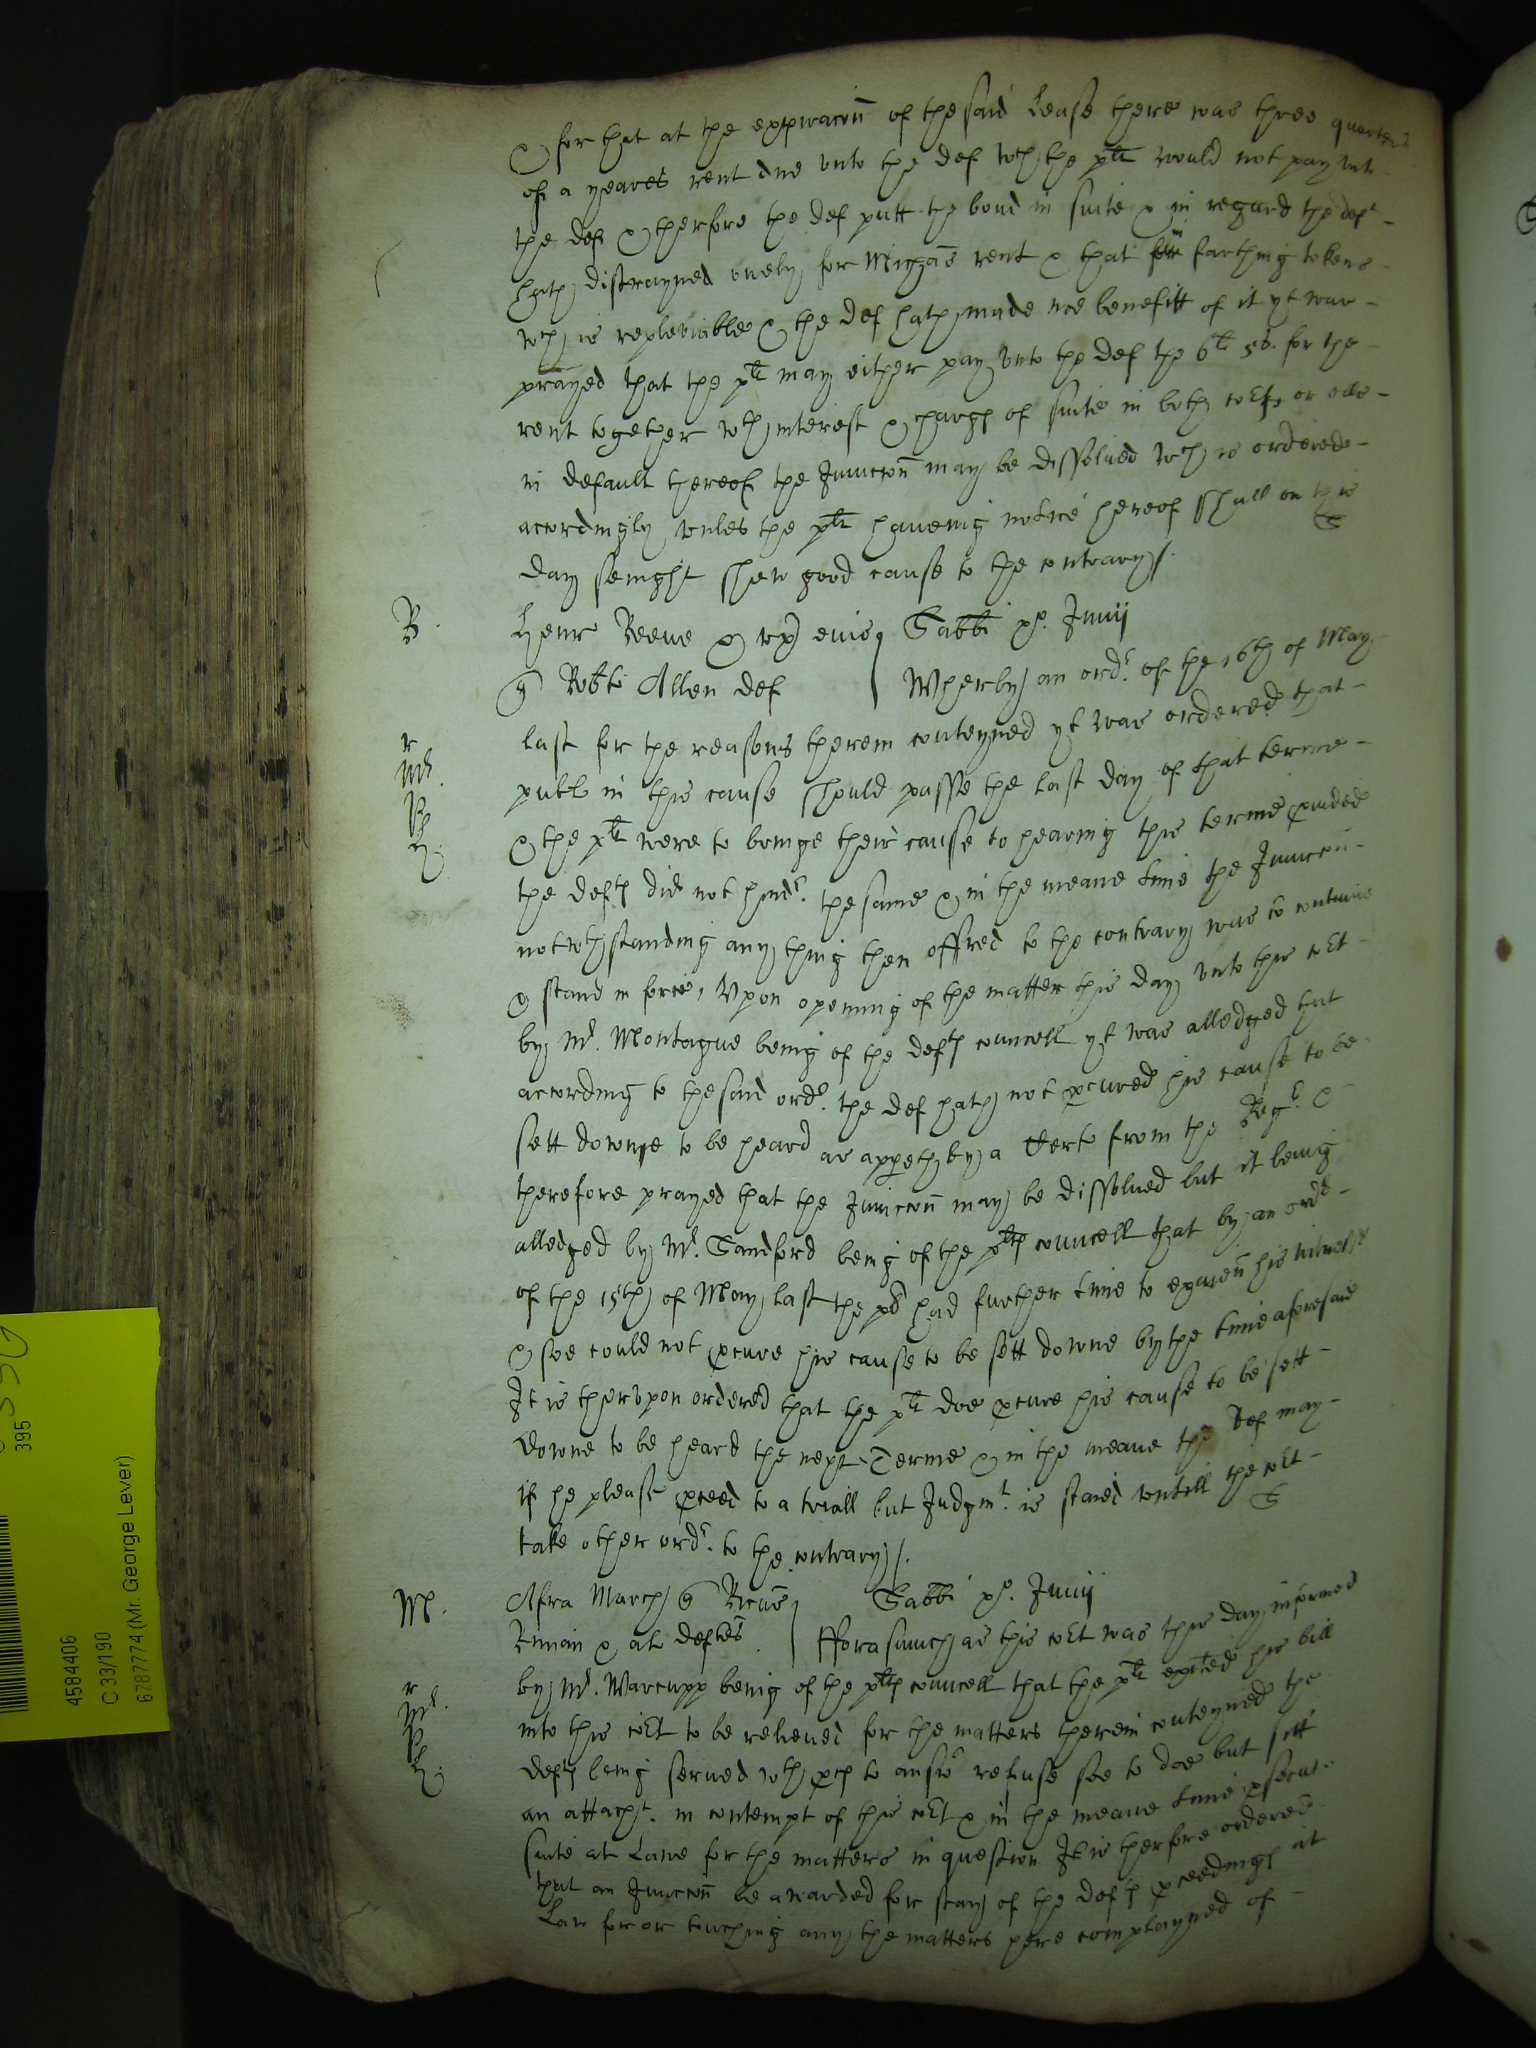 & for that at the expiracon of the said Lease there was three quarters
of a yeares rent due vnto the def wch the plt would not pay vnto
the def & therfore the def putt the bond in suite & in regard the deft
hath distrayned onely for Michas rent & that farthing tokens
wch is repleviable & the def hath made noe benefitt of it yt was
prayed that the plt may either pay vnto the def the 6li 5s. for the
rent together wth interest & charges of suite in both Cots or else
in default thereof the Juniccon may be dissolued wch is ordered
accordingly vnles the plt haueing notice hereof shall on this
day senight shew good cause to the contrary /.
B.
Henr Reeue & vx eius Sabbi po. Junij
Robto Allen def Wherby an ordr. of the 16th of May
last for the reasons therein conteyned yt was ordered that
publ in this cause should passe the last day of that terme
& the plt were to bringe their cause to hearing this terme prouided
the defts did not hindr. the same & in the meane time the Juniccon
notwthstanding any thing then offred to the contrary was to continue
& stand in force, Vpon opening of the matter this day vnto this Cot
by Mr. Montague being of the defts councell yt was alledged that
according to the said ordr. the def hath not pcured his cause to be
sett downe to be heard as appeth by a Certe from the Regr. &
therefore prayed that the Juniccon may be dissolued but it being
alledged by Mr. Sandford being of the plts councell that by an ordr
of the 15th of May last the plt had further time to examen his witnesses
& soe could not pcure his cause to be sett downe by the time aforesaid
It is thervpon ordered that the plt doe pcure his cause to be sett
downe to be heard the next Terme & in the meane the def may
if he please pceed to a triall but Judgmt. is staied vntill the Cot
take other ordr. to the contrary /.
M.
Afra March Sabbi po. Junij
& al deftes Fforasmuch as this Cot was this day informed
by Mr. Warcupp being of the plts councell that the plt exited his bill
into this Cot to be releiued for the matters therein conteyned the
defts being serued wth pces to answer refuse soe to doe but sitt
an attacht. in contempt of this Cot & in the meane time psecute
suite at Lawe for the matters in question It is therfore ordered
that an Juniccon be awarded for stay of the defts pceedings at
Law for or touching any the matters here complayned of
4584406
C 33/190
6787774 (Mr. George Lever)
395